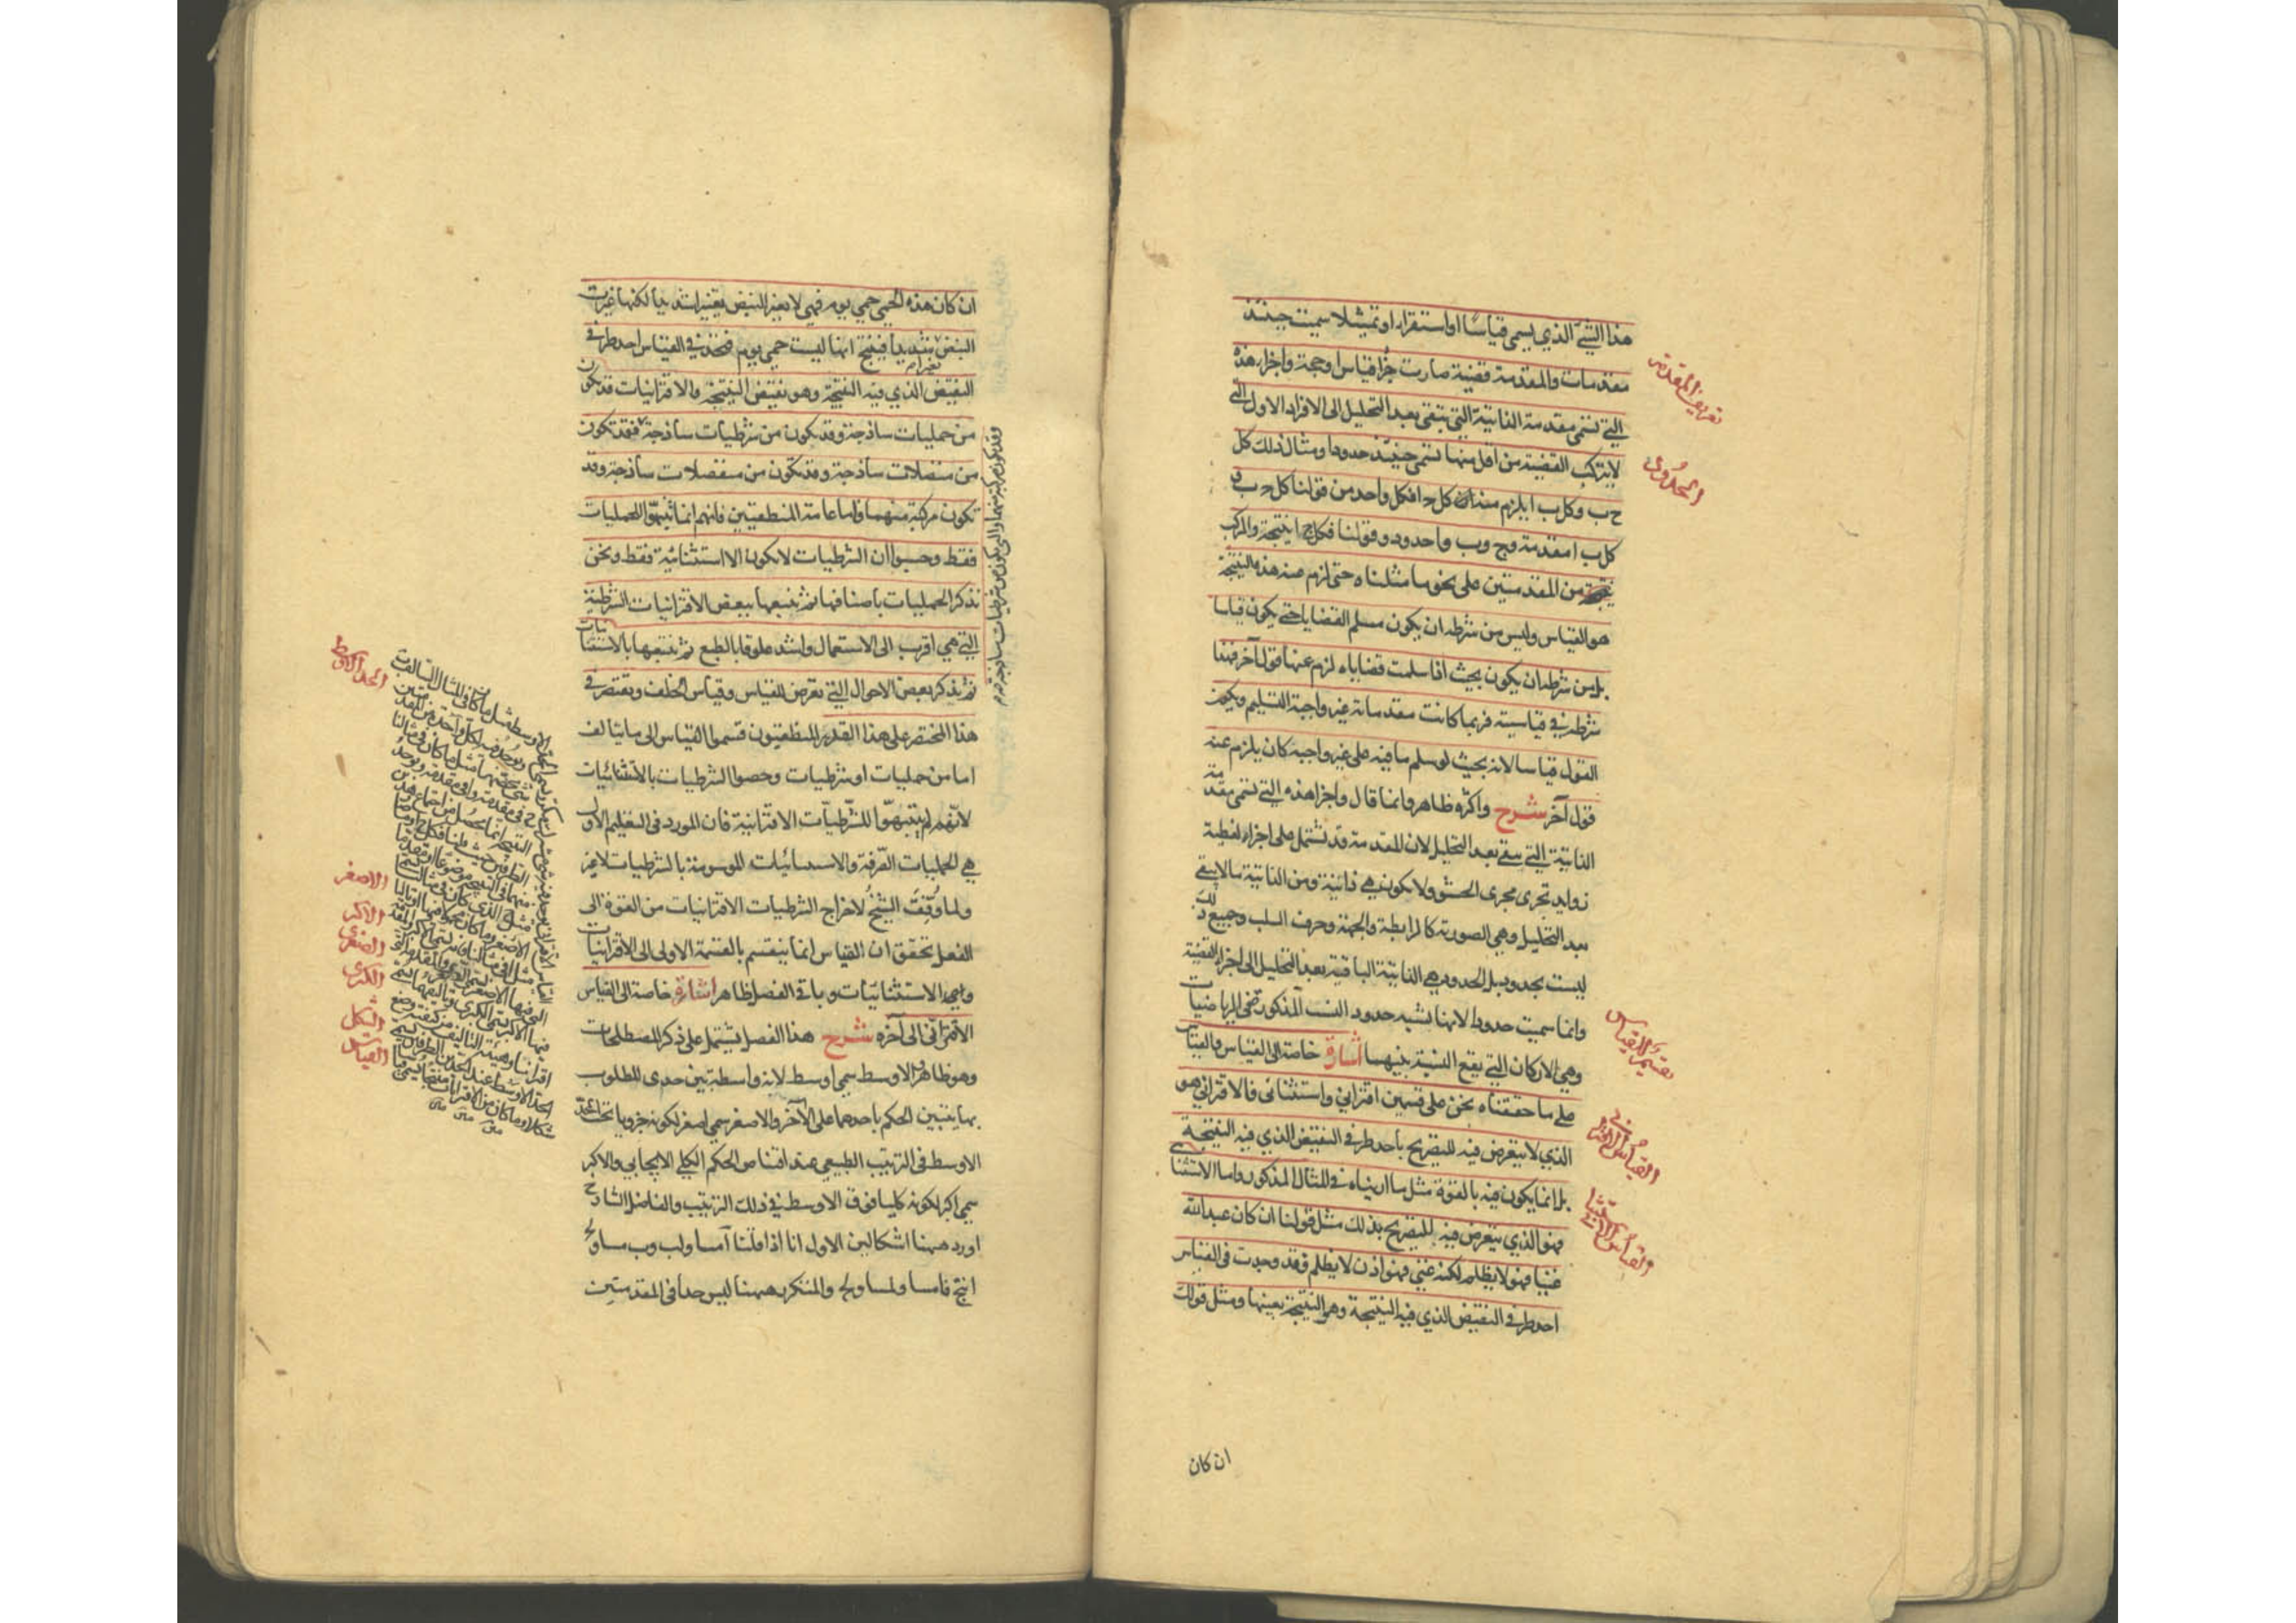 هذا الشيء الذي يسمى قياسا او استقراء او تمثيلا سميت حينئذ
مقدمات والمقدمة قضية صارت جزء قياس او حجة واجزاء هذه
التي تسمى مقدمة الذاتية التي تبقى بعد التحليل الى الافراد الاول التي
لا يتركب القضية من اقل منها تسمى حينئذ حدودا ومثال ذلك كل
ج ب وكل ب ا يلزم منه ان كل ج ا فكل واحد من قولنا كل ج ب و
كل ب ا مقدمة وج وب وا حدود وقولنا فكل ج ا نتيجة والمركب
من المقدمتين على نحو ما مثلناه حتى لزم عنه هذه النتيجة
هو القياس وليس من شرطه ان يكون مسلم القضايا حتى يكون قياسا
بل من شرطه ان يكون بحيث اذا سلمت قضاياه لزم عنها قول آخر فهذا
شرطه في قياسيته فربما كانت مقدماته غير واجبة التسليم ويكون
القول قياسا لانه بحيث لو سلم ما فيه على غير واجبه كان يلزم عنه
قول آخر شرح واكثره ظاهر وانما قال واجزاء هذه التي تسمى مقدمة
الذاتية التي يبقى بعد التحليل لان المقدمة قد تشتمل على اجزاء لفظية
زوايد تجرى مجرى الحشو ولا يكون هي ذاتية ومن الذاتية ما لا يبقى
بعد التحليل وهي الصورية كالرابطة والجهة وحرف السلب وجميع ذلك
ليست بحدود بل الحدود هي الذاتية الباقية بعد التحليل الى اجزاء القضية
وانما سميت حدودا لانها تشبه حدود النسب المذكورة في الرياضيات
وهي الاركان التي يقع النسبة بينها اشارة خاصة الى القياس والقياس
على ما حققناه نحن على قسمين اقتراني واستثنائي فالاقتراني هو
الذي لا يتعرض فيه للتصريح باحد طرفي النقيض الذي فيه النتيجة
بل انما يكون فيه بالقوة مثل ما اريناه في المثال المذكور واما الاستثنائي
فهو الذي يتعرض فيه للتصريح بذلك مثل قولنا ان كان عبد الله
غنيا فهو لا يظلم لكنه غني فهو اذن لا يظلم فقد وجدت في القياس
احد طرفي النقيض الذي فيه النتيجة وهو النتيجة بعينها ومثل قولك
ان كان
تعريف المقدمة
الحدود
تقسيم القياس
القياس الاقتراني
القياس الاستثنائي
ان كان هذه الحمى حمى يوم فهي لا يغير النبض تغييرا شديدا لكنها غيرت
النبض شديدا فينتج انها ليست حمى يوم فتجد في القياس احد طرفي
تغييرا
النقيض الذي فيه النتيجة وهو نقيض النتيجة والاقترانيات قد يكون
من حمليات ساذجة وقد يكون من شرطيات ساذجة فقد تكون
من متصلات ساذجة وقد تكون من منفصلات ساذجة وقد
تكون مركبة منهما واما عامة المنطقيين فانهم انما تنبهوا للحمليات
فقط وحسبوا ان الشرطيات لا تكون الا استثنائية فقط ونحن
نذكر الحمليات باصنافها ثم نتبعها ببعض الاقترانيات الشرطية
التي هي اقرب الى الاستعمال واشد علوقا بالطبع ثم نتبعها بالاستثنائيات
ثم نذكر بعض الاحوال التي تعرض للقياس وقياس الخلف ونقتصر في
هذا المختصر على هذا القدر المنطقيون قسموا القياس الى ما يتالف
اما من حمليات او شرطيات وخصوا الشرطيات بالاستثنائيات
لانهم لم يتنبهوا للشرطيات الاقترانية فان المورد في التعليم الاول
هي الحمليات الصرفة والاستثنائيات الموسومة بالشرطيات لا غير
ولما وقف الشيخ لاخراج الشرطيات الاقترانيات من القوة الى
الفعل تحقق ان القياس انما ينقسم بالقسمة الاولى الى الاقترانيات
والى الاستثنائيات وباقي الفصل ظاهر اشارة خاصة الى القياس
الاقتراني الى آخره شرح هذا الفصل يشتمل على ذكر المصطلحات
وهو ظاهر والاوسط سمى اوسط لانه واسطة بين حدى المطلوب
بها يتبين الحكم باحدهما على الآخر والاصغر سمى اصغر لكونه جزويا تحت الحد
الاوسط في الترتيب الطبيعي عند اقتناص الحكم الكلي الايجابي والاكبر
سمى اكبر لكونه كليا فوق الاوسط في ذلك الترتيب والفاضل الشارح
اورد ههنا اشكالين الاول انا اذا قلنا آ مساو لب وب مساو لج
انتج فا مساو لمساو لج والمتكرر ههنا ليس حدا في المقدمتين
وقد يكون مركبة منهما والتي يكون من شرطيات ساذجة
الحد الاوسط
الاصغر
الاكبر
الصغرى
الكبرى
الشكل
القياس